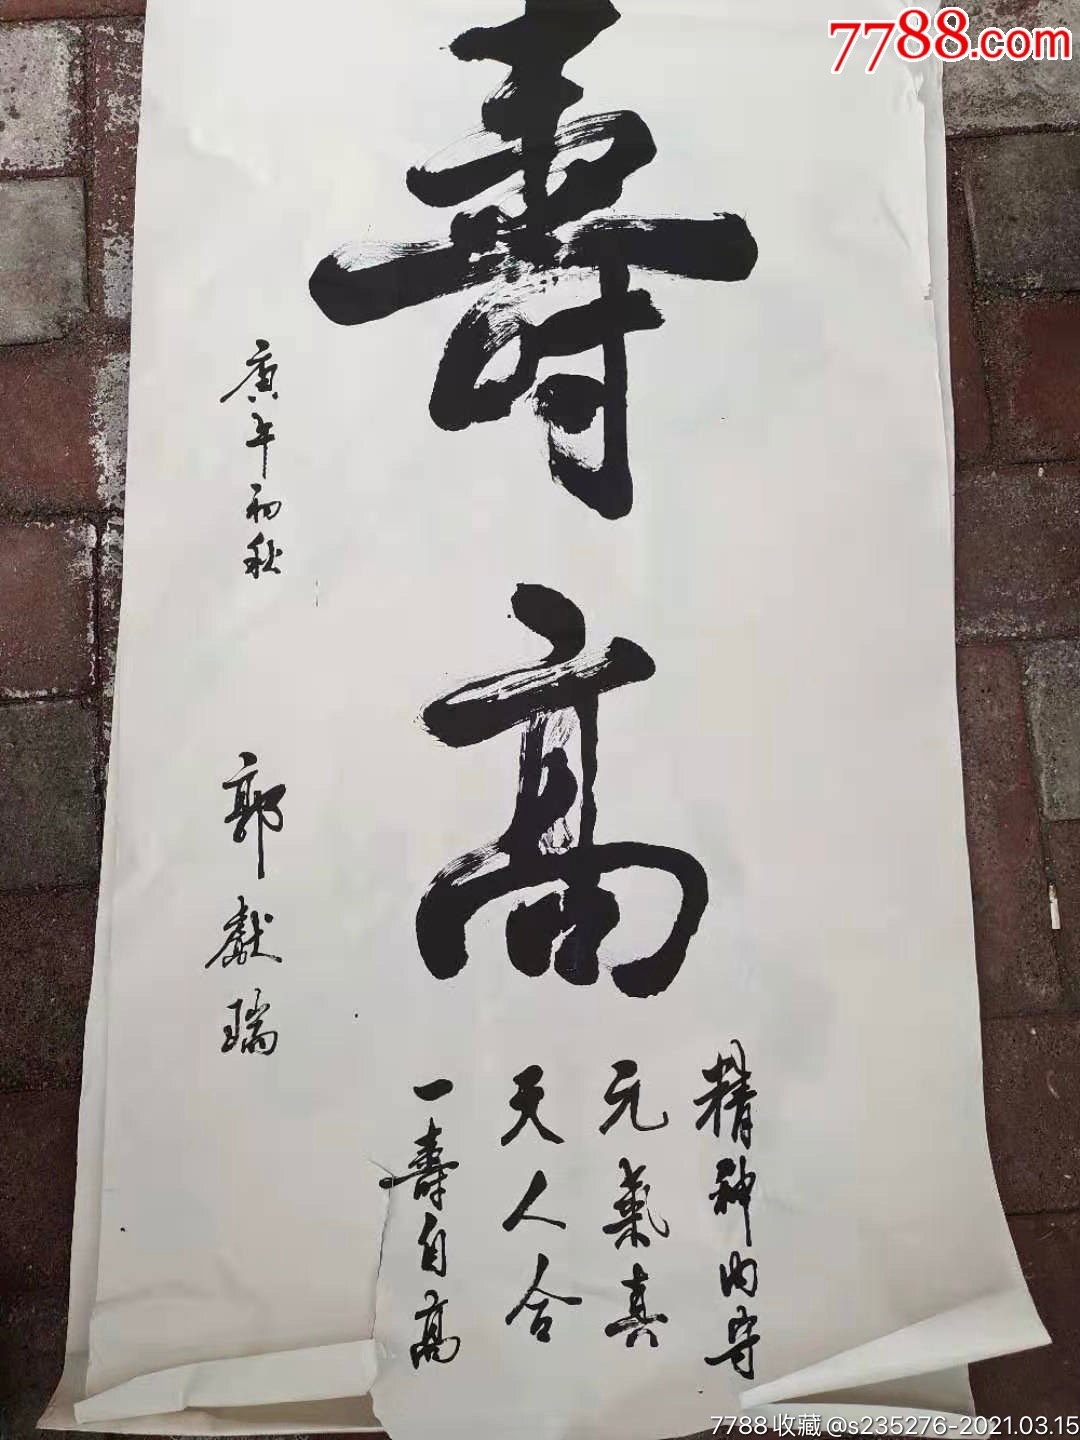 7788.com
壽高
精神内守
元氣真
天人合
一壽自高
庚午初秋
郭獻瑞
7788收藏@s235276-2021.03.15